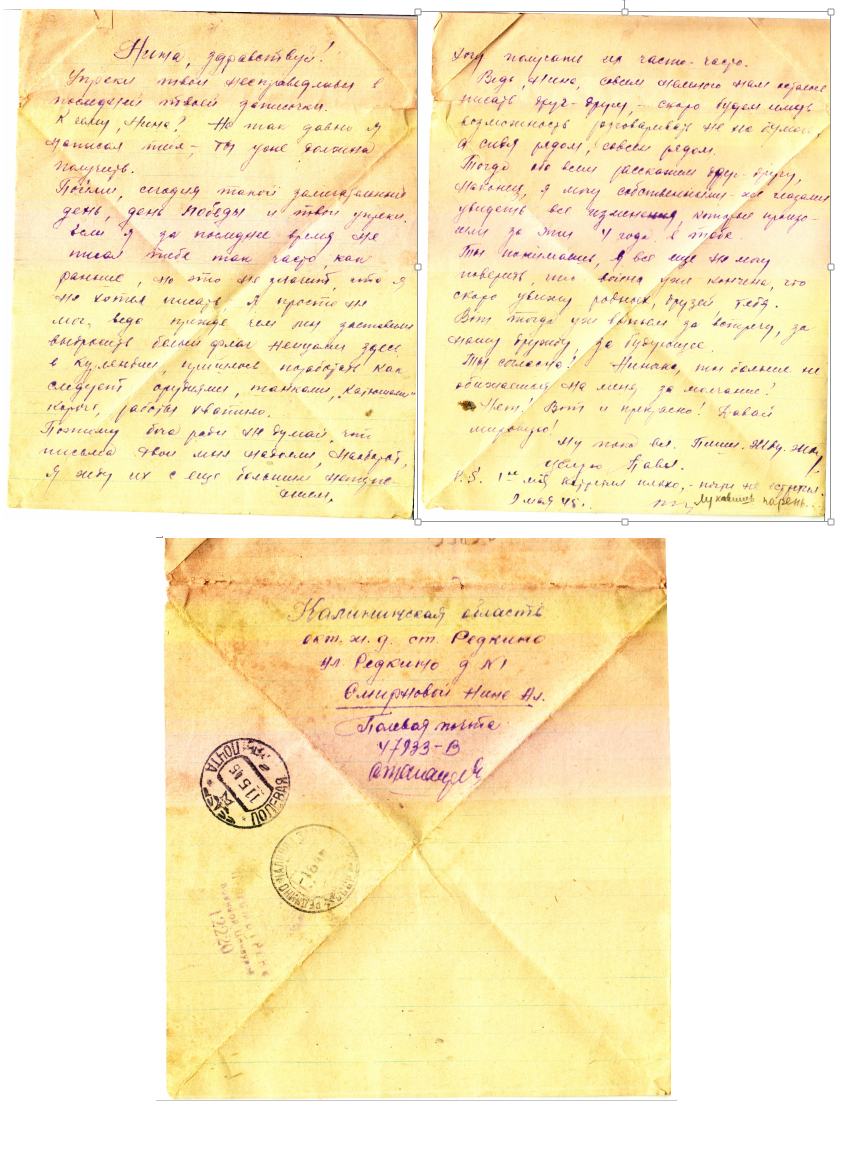 Нина, здравствуй!
Упреки твои несправедливы в
последней твоей записочки.
К чему, Нина? Не так давно я
написал тебе, ты уже должна
получить.
Пойми, сегодня такой замечательный
день, день Победы и твои упреки.
Если я за последнее время не
писал тебе так часто, как
раньше, но это не значит, что я
не хотел писать, я просто не
мог, ведь прежде чем мы заставили
выбросить белый флаг немцами здесь
в Курляндии, пришлось поработать как
следует орудиями, танками, "Катюшами"
короче, работы хватило.
Поэтому бога ради не думай, что
письма твои мне надоели, наоборот,
я жду их с еще большим нетерпе-
нием,
хочу получать их часто-часто.
Ведь, Нина, совсем немного нам осталось
писать друг-другу, - скоро будем иметь
возможность разговаривать не на бумаге,
а сидя рядом, совсем рядом.
Тогда обо всем расскажем друг-другу,
наконец, я могу собственными глазами
увидеть все изменения, которые произо-
шли за эти 4 года в тебе.
Ты понимаешь, я все еще не могу
поверить, что война уже кончена, что
скоро увижу родных, друзей тебя.
Вот тогда уж выпьем за встречу, за
нашу дружбу, за будующее.
Ты согласна? Нинака, ты больше не
обижаешься на меня за молчание?
Нет! Вот и прекрасно! Давай
мировую!
Ну пока вся. Пиши. Жду. Жду!
Целую Павел.
P.S. 1ое мая встретил плохо, - почти не встретил.
9 мая 45.
Лукавишь парень.
Калининская область
окт. ж.д. ст. Редкино
п. Редкино д N1
Смирновой Нине Ал.
Полевая почта
47933-В
ПОЛЕВАЯ ПОЧТА
11 5 45
РЕДКИНО КАЛИН
СССР
Просмотрено
Военной Цензурой
02271